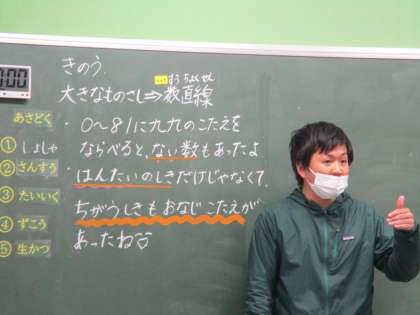 :00
あさどく
① しょしゃ
② さんすう
③ たいいく
④ ずこう
⑤ 生かつ
きのう
すうちょくせん
大きなものさし⇒数直線
・0〜81に九九のこたえを
ならべると、ない数もあったよ
・はんたいのしきだけじゃなくて、
ちがうしきもおなじこたえが
あったね